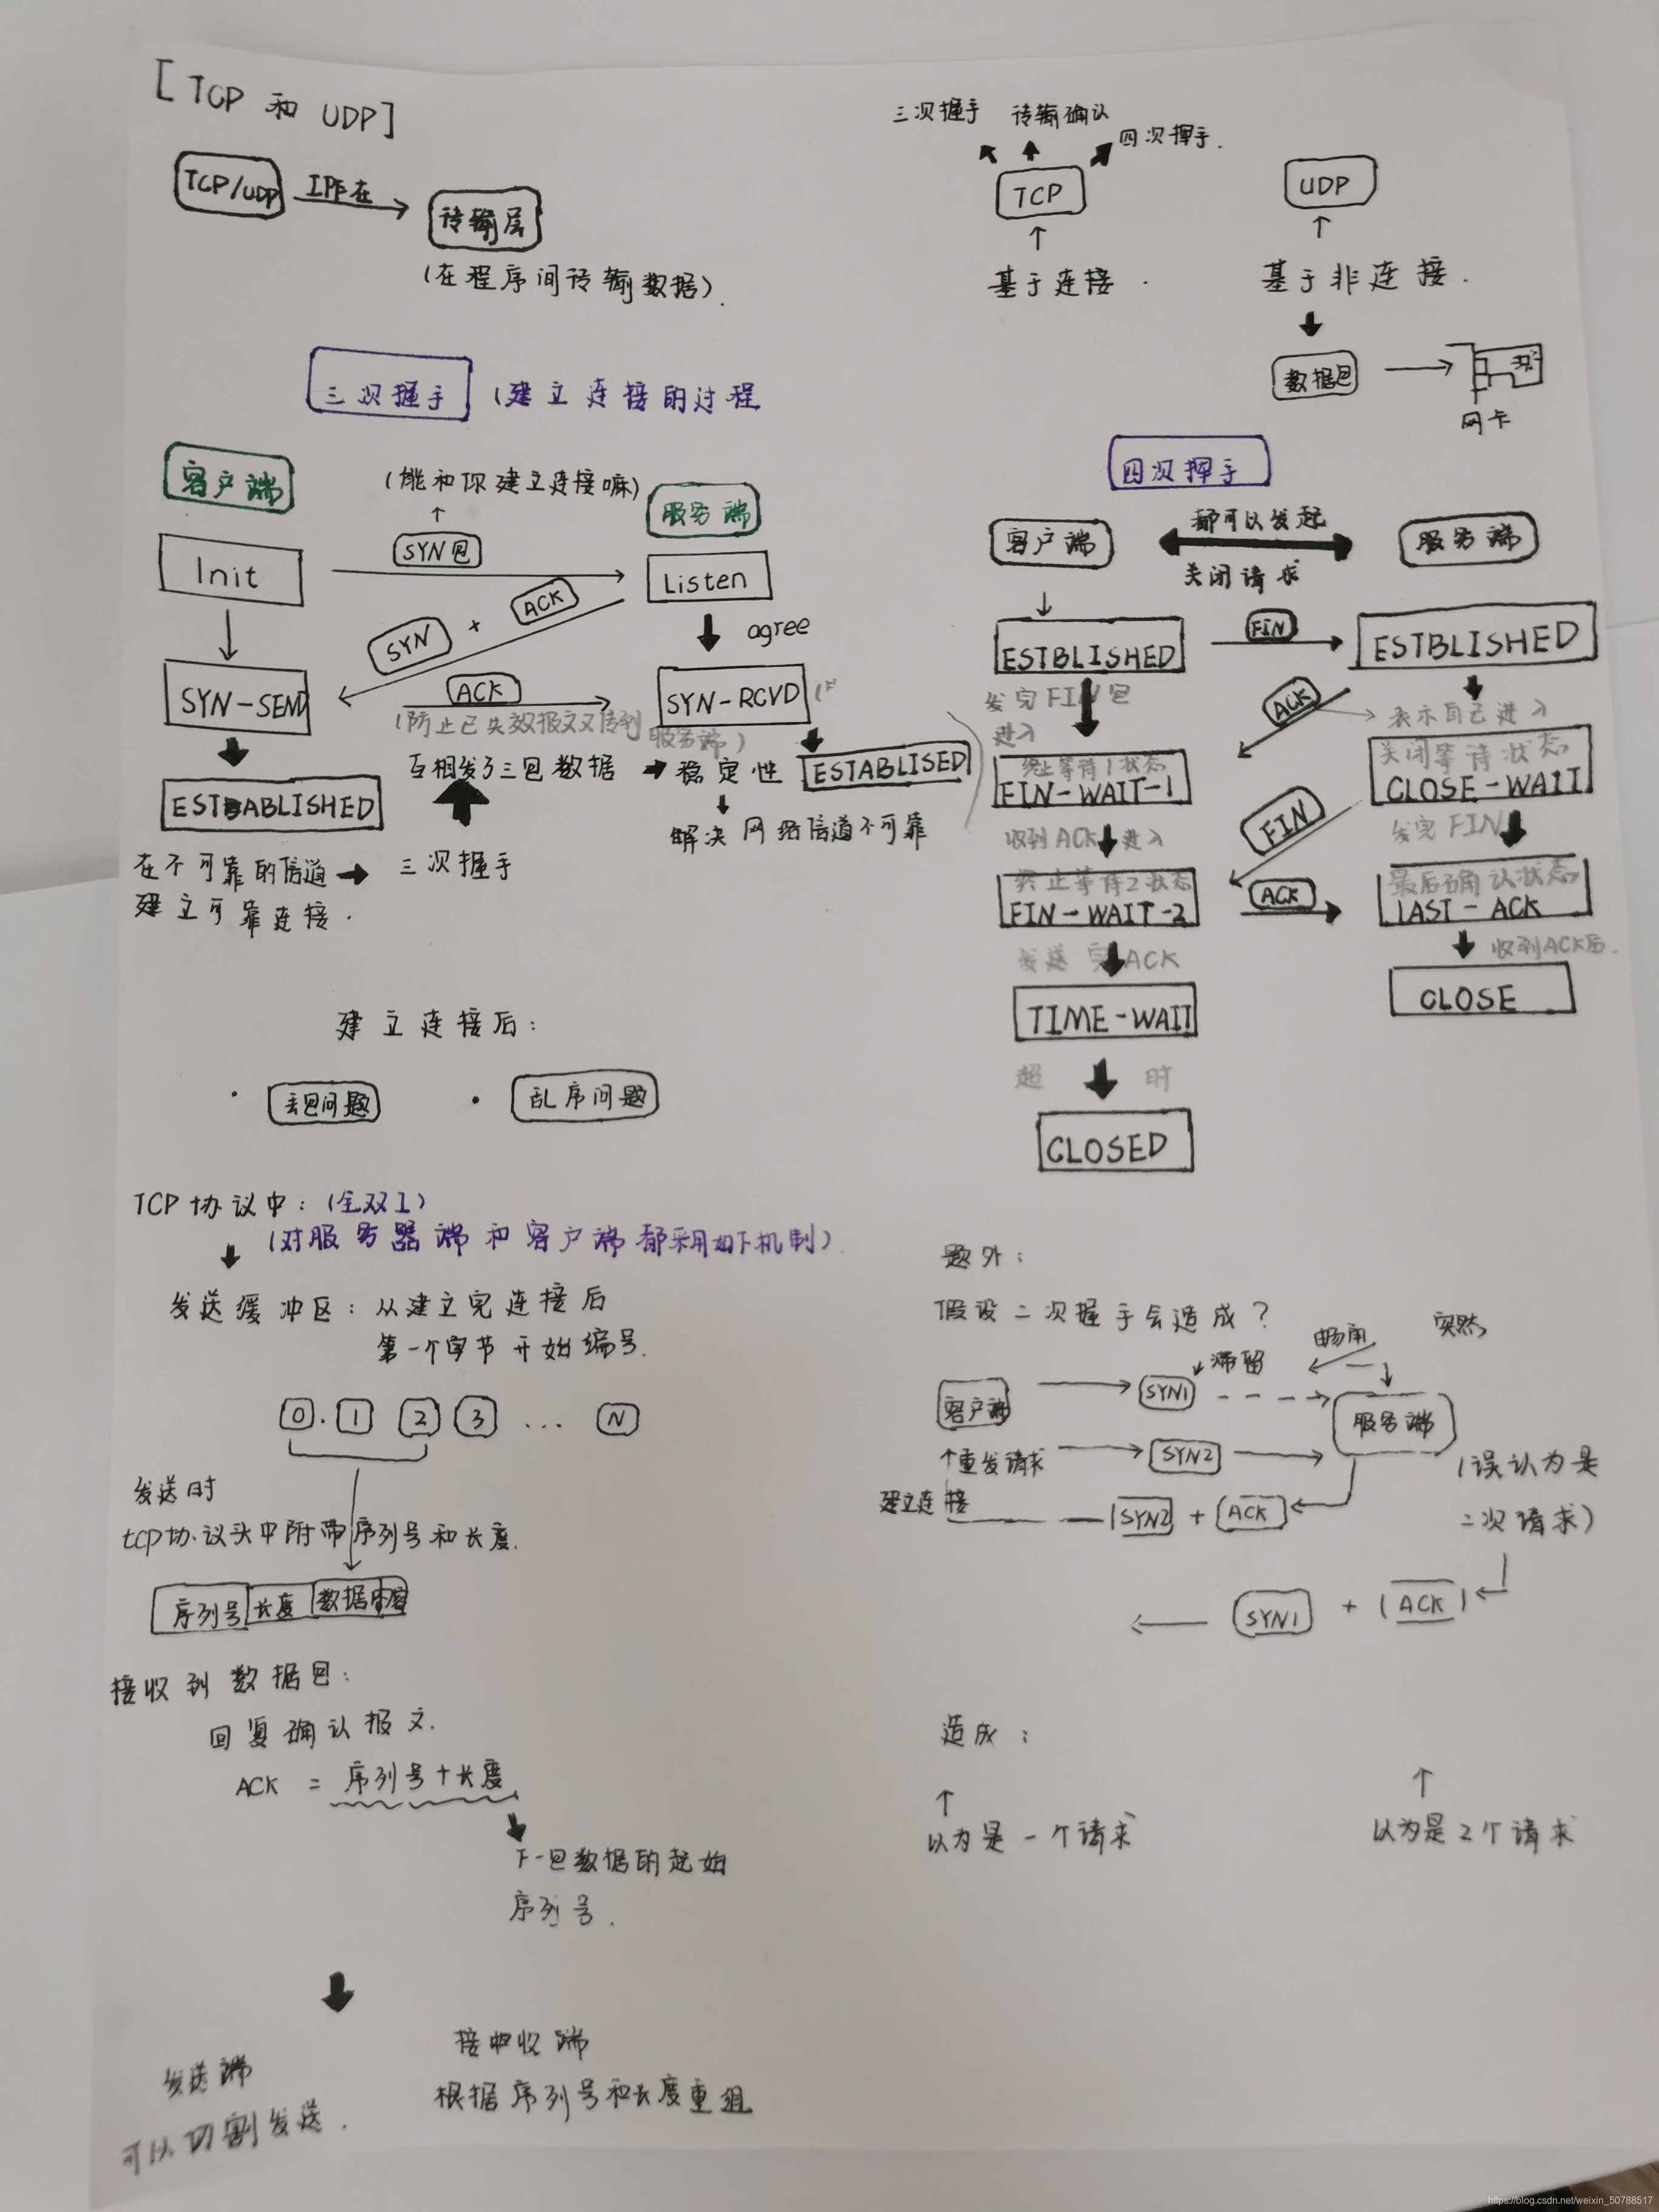 [TCP 和 UDP]
TCP/UDP
工作在
传输层
(在程序间传输数据).
三次握手 传输确认
四次挥手.
TCP
UDP
基于连接.
基于非连接.
数据包
网卡
三次握手 (建立连接的过程
客户端
(能和你建立连接嘛)
服务端
Init
SYN包
Listen
SYN + ACK
agree
SYN-SEND
ACK
SYN-RCVD
(防止已失效报文又传到服务端)
互相发了三包数据
稳定性
ESTABLISED
ESTABLISHED
解决网络信道不可靠
在不可靠的信道
三次握手
建立可靠连接.
四次挥手
客户端
都可以发起
关闭请求
服务端
ESTBLISHED
FIN
ESTBLISHED
发完FIN包
进入
ACK
表示自己进入
终止等待1状态
FIN-WAIT-1
关闭等待状态
CLOSE-WAIT
收到ACK进入
FIN
发完FIN
终止等待2状态
FIN-WAIT-2
ACK
最后确认状态
LAST-ACK
发送完ACK
收到ACK后.
TIME-WAIT
CLOSE
超时
CLOSED
建立连接后:
· 丢包问题 · 乱序问题
TCP协议中: (全双工)
(对服务器端和客户端都采用如下机制).
发送缓冲区: 从建立完连接后
第一个字节开始编号.
0. 1 2 3 ... N
发送时
tcp协议头中附带序列号和长度.
序列号 长度 数据内容
接收到数据包:
回复确认报文.
ACK = 序列号+长度
下一包数据的起始
序列号.
发送端
可以切割发送.
接收端
根据序列号和长度重组
题外:
假设二次握手会造成?
滞留
畅通
突然
客户端
SYN1
服务端
重发请求
SYN2
(误认为是
二次请求)
建立连接
SYN2 + ACK
SYN1 + ACK
造成:
以为是一个请求
以为是2个请求
https://blog.csdn.net/weixin_50788517